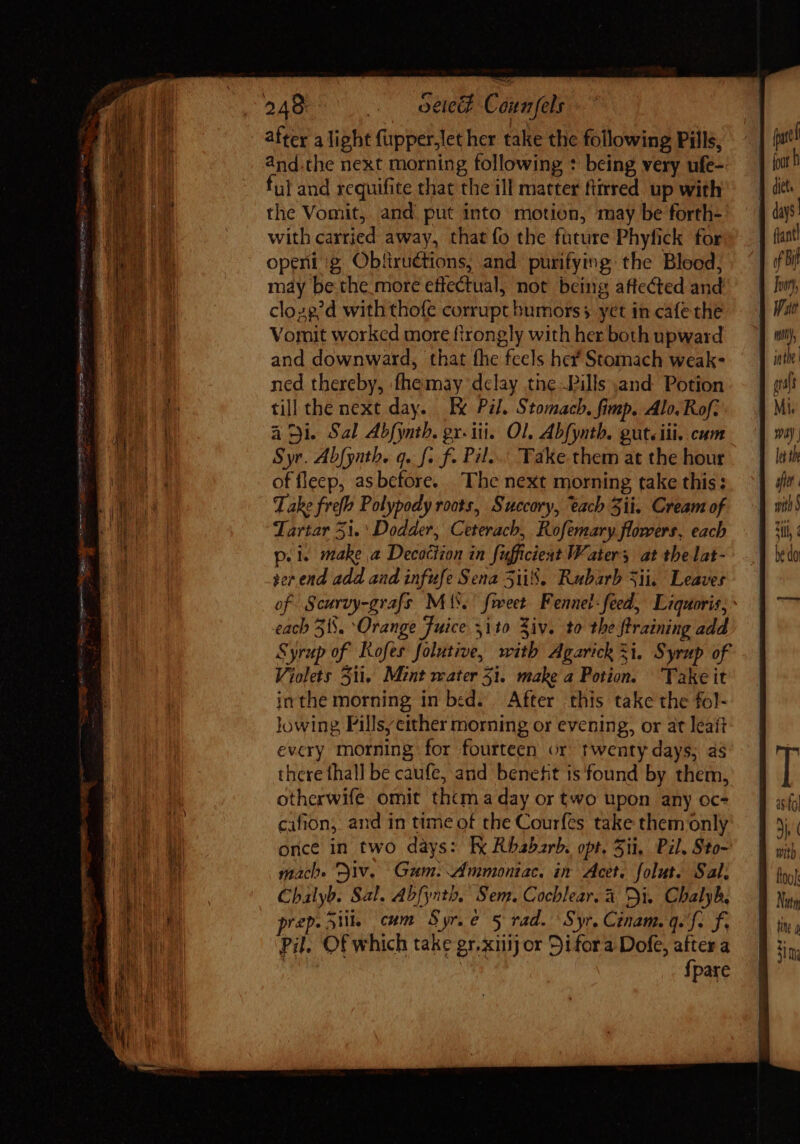 248 Select Counſels
after a light ſupper, let her take the following Pills,
and the next morning following : being very uſe-
ful and requiſite that the ill matter ſtirred up with
the Vomit, and put into motion, may be forth-
with carried away, that ſo the future Phyſick for
opening Obſtructions, and purifying the Blood,
may be the more effectual, not being affected and
clogg'd with thoſe corrupt humors; yet in caſe the
Vomit worked more ſtrongly with her both upward
and downward, that ſhe feels her Stomach weak-
ned thereby, ſhe may delay the Pills and Potion
till the next day. ℞ Pil. Stomach. ſimp. Alo. Roſ.
a ℈i. Sal Abſynth. gr. iii. Ol. Abſynth. gut. iii. cum
Syr. Abſynth. q. ſ. f. Pil. Take them at the hour
of ſleep, as before. The next morning take this:
Take freſh Polypody roots, Succory, each ℥ii. Cream of
Tartar ʒi. Dodder, Ceterach, Roſemary flowers, each
p. i. make a Decoction in ſufficient Water; at the lat-
ter end add and infuſe Sena ʒiiß. Rubarb ʒii. Leaves
of Scurvy-graſs Mß. ſweet Fennel-ſeed, Liquoris,
each ʒß. Orange Juice ʒi to ℥iv. to the ſtraining add
Syrup of Roſes ſolutive, with Agarick ʒi. Syrup of
Violets ʒii. Mint water ʒi. make a Potion. Take it
in the morning in bed. After this take the fol-
lowing Pills, either morning or evening, or at leaſt
every morning for fourteen or twenty days, as
there ſhall be cauſe, and benefit is found by them,
otherwiſe omit them a day or two upon any oc-
caſion, and in time of the Courſes take them only
once in two days: ℞ Rhabarb. opt. ʒii. Pil. Sto-
mach. ℈iv. Gum. Ammoniac. in Acet. ſolut. Sal.
Chalyb. Sal. Abſynth. Sem. Cochlear. a ℈i. Chalyb.
præp. ʒiii. cum Syr. è 5 rad. Syr. Cinam. q. ſ. f.
Pil. Of which take gr. xiiij or ℈i for a Doſe, after a
ſpare